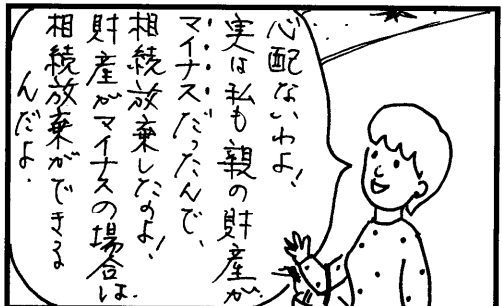 心配ないわよ!
実は私も親の財産が
マイナスだったんで、
相続放棄したのよ!
財産がマイナスの場合は
相続放棄ができる
んだよ.